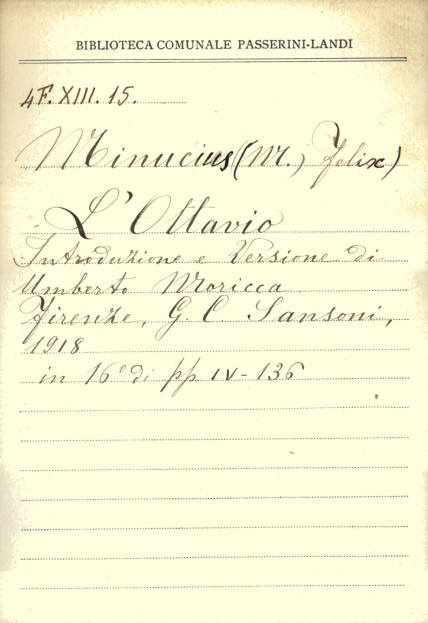 BIBLIOTECA COMUNALE PASSERINI-LANDI
4F. XIII. 15.
Minucius (M.) Felix)
L'Ottavio
Introduzione e Versione di
Umberto Moricca
Firenze, G. C Sansoni,
1918
in 16º di pp IV-136